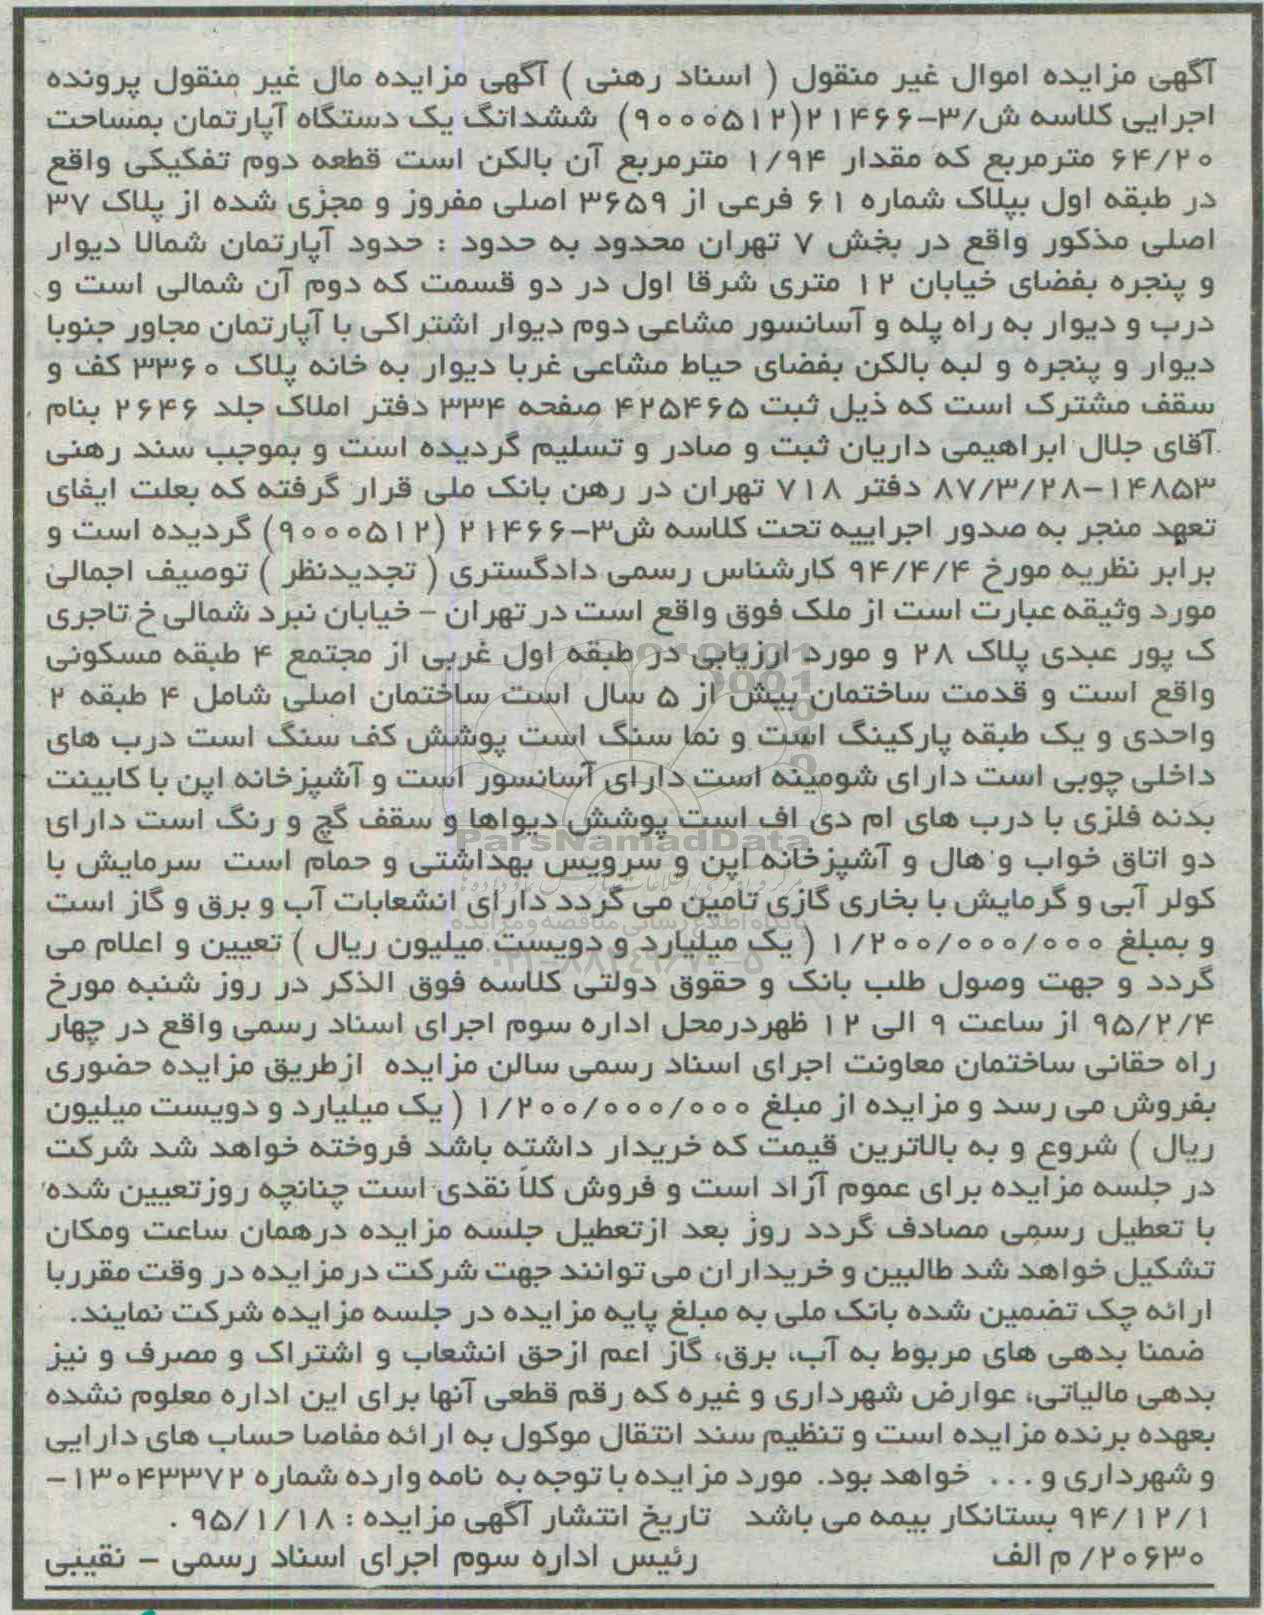 آگهی مزایده اموال غیر منقول ( اسناد رهنی ) آگهی مزایده مال غیر منقول پرونده
اجرایی کلاسه ش/۳-۲۱۴۶۶(۹۰۰۰۵۱۲) ششدانگ یک دستگاه آپارتمان بمساحت
۶۴/۲۰ مترمربع که مقدار ۱/۹۴ مترمربع آن بالکن است قطعه دوم تفکیکی واقع
در طبقه اول بپلاک شماره ۶۱ فرعی از ۳۶۵۹ اصلی مفروز و مجزی شده از پلاک ۳۷
اصلی مذکور واقع در بخش ۷ تهران محدود به حدود : حدود آپارتمان شمالا دیوار
و پنجره بفضای خیابان ۱۲ متری شرقا اول در دو قسمت که دوم آن شمالی است و
درب و دیوار به راه پله و آسانسور مشاعی دوم دیوار اشتراکی با آپارتمان مجاور جنوبا
دیوار و پنجره و لبه بالکن بفضای حیاط مشاعی غربا دیوار به خانه پلاک ۳۳۶۰ کف و
سقف مشترک است که ذیل ثبت ۴۲۵۴۶۵ صفحه ۳۳۴ دفتر املاک جلد ۲۶۴۶ بنام
آقای جلال ابراهیمی داریان ثبت و صادر و تسلیم گردیده است و بموجب سند رهنی
۱۴۸۵۳-۸۷/۳/۲۸ دفتر ۷۱۸ تهران در رهن بانک ملی قرار گرفته که بعلت ایفای
تعهد منجر به صدور اجراییه تحت کلاسه ش۳-۲۱۴۶۶ (۹۰۰۰۵۱۲) گردیده است و
برابر نظریه مورخ ۹۴/۴/۴ کارشناس رسمی دادگستری ( تجدیدنظر ) توصیف اجمالی
مورد وثیقه عبارت است از ملک فوق واقع است در تهران - خیابان نبرد شمالی خ تاجری
ک پور عبدی پلاک ۲۸ و مورد ارزیابی در طبقه اول غربی از مجتمع ۴ طبقه مسکونی
واقع است و قدمت ساختمان بیش از ۵ سال است ساختمان اصلی شامل ۴ طبقه ۲
واحدی و یک طبقه پارکینگ است و نما سنگ است پوشش کف سنگ است درب های
داخلی چوبی است دارای شومینه است دارای آسانسور است و آشپزخانه اپن با کابینت
بدنه فلزی با درب های ام دی اف است پوشش دیواها و سقف گچ و رنگ است دارای
ParsNamadData
دو اتاق خواب و هال و آشپزخانه اپن و سرویس بهداشتی و حمام است سرمایش با
کولر آبی و گرمایش با بخاری گازی تامین می گردد دارای انشعابات آب و برق و گاز است
پایگاه اطلاع رسانی مناقصه و مزایده
و بمبلغ ۱/۲۰۰/۰۰۰/۰۰۰ ( یک میلیارد و دویست میلیون ریال ) تعیین و اعلام می
گردد و جهت وصول طلب بانک و حقوق دولتی کلاسه فوق الذکر در روز شنبه مورخ
۹۵/۲/۴ از ساعت ۹ الی ۱۲ ظهردرمحل اداره سوم اجرای اسناد رسمی واقع در چهار
راه حقانی ساختمان معاونت اجرای اسناد رسمی سالن مزایده ازطریق مزایده حضوری
بفروش می رسد و مزایده از مبلغ ۱/۲۰۰/۰۰۰/۰۰۰ ( یک میلیارد و دویست میلیون
ریال ) شروع و به بالاترین قیمت که خریدار داشته باشد فروخته خواهد شد شرکت
در جلسه مزایده برای عموم آزاد است و فروش کلاً نقدی است چنانچه روزتعیین شده
با تعطیل رسمی مصادف گردد روز بعد ازتعطیل جلسه مزایده درهمان ساعت ومکان
تشکیل خواهد شد طالبین و خریداران می توانند جهت شرکت درمزایده در وقت مقرربا
ارائه چک تضمین شده بانک ملی به مبلغ پایه مزایده در جلسه مزایده شرکت نمایند.
ضمنا بدهی های مربوط به آب، برق، گاز اعم ازحق انشعاب و اشتراک و مصرف و نیز
بدهی مالیاتی، عوارض شهرداری و غیره که رقم قطعی آنها برای این اداره معلوم نشده
بعهده برنده مزایده است و تنظیم سند انتقال موکول به ارائه مفاصا حساب های دارایی
و شهرداری و ... خواهد بود. مورد مزایده با توجه به نامه وارده شماره ۱۳۰۴۳۳۷۲-
۹۴/۱۲/۱ بستانکار بیمه می باشد تاریخ انتشار آگهی مزایده : ۹۵/۱/۱۸ .
۲۰۶۳۰/ م الف رئیس اداره سوم اجرای اسناد رسمی - نقیبی